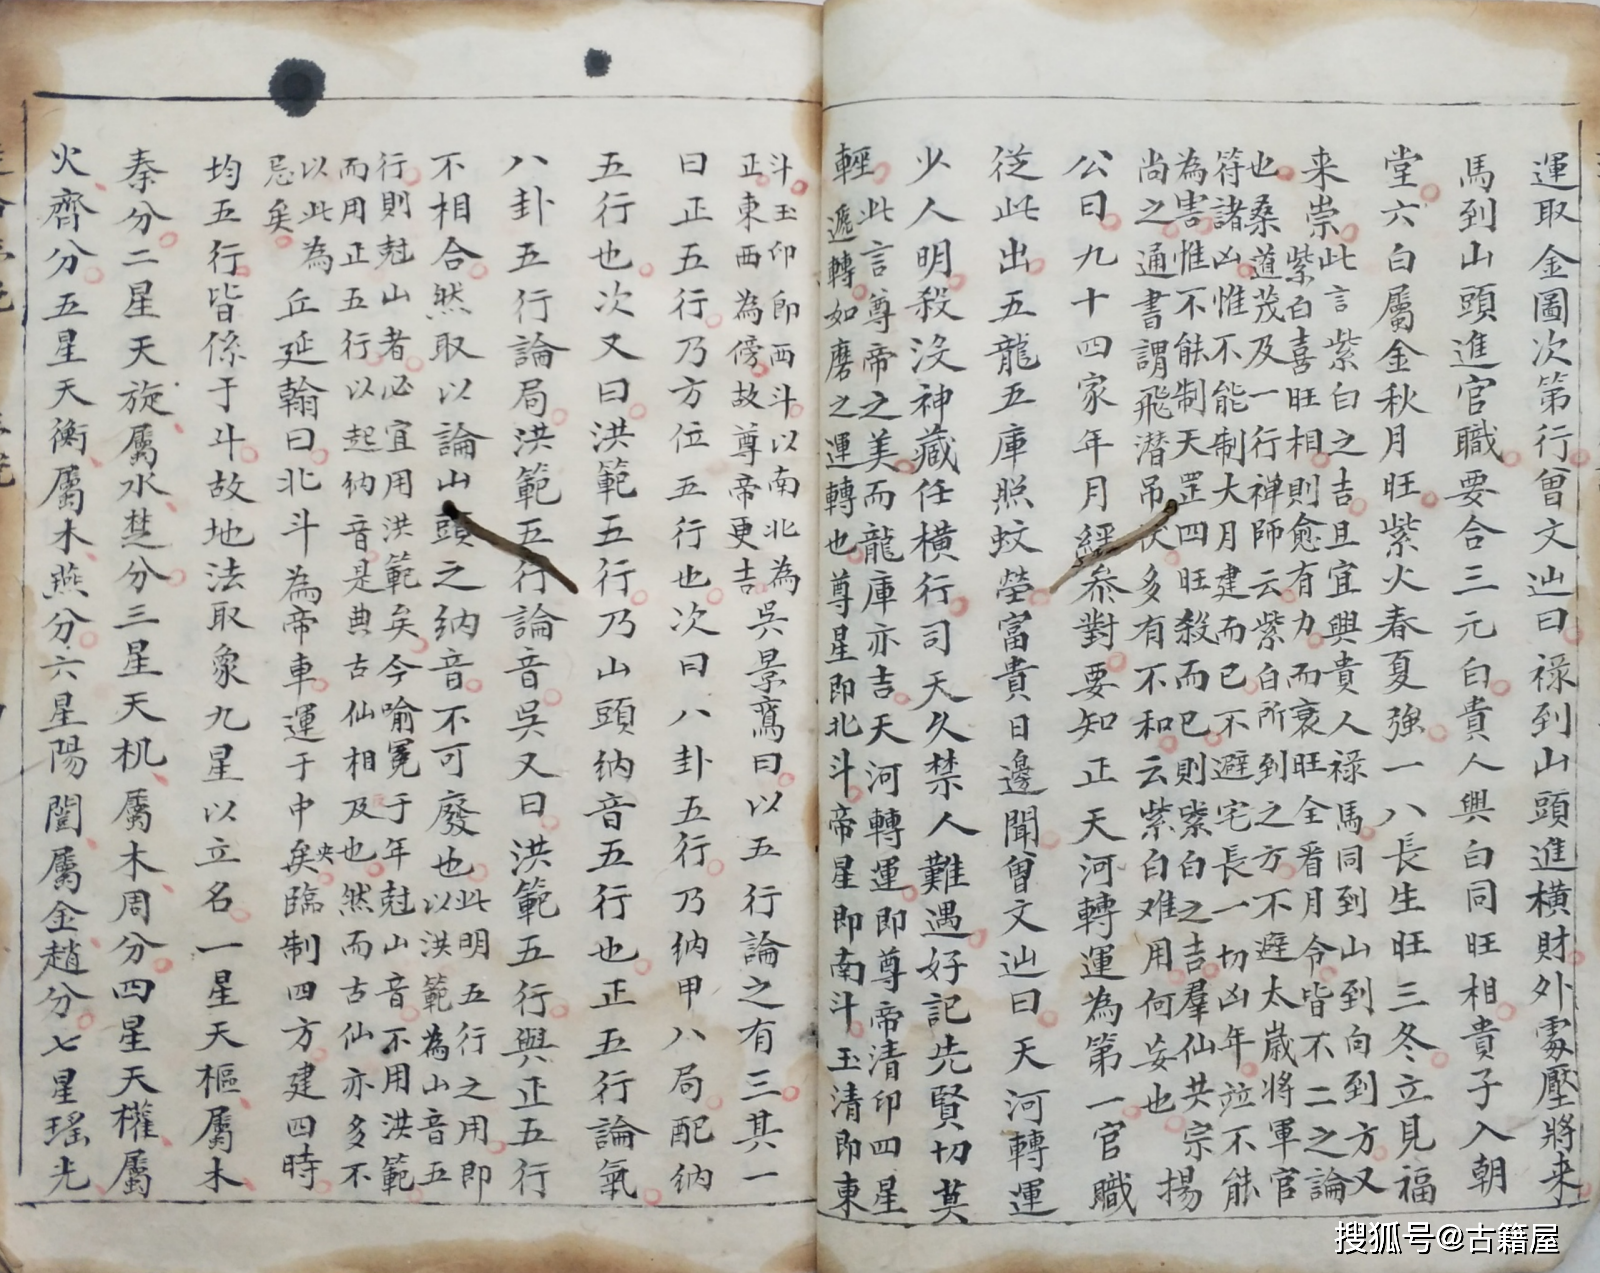 運取金圖次第行曾文辿曰祿到山頭進橫財外處壓將来
馬到山頭進官職要合三元白貴人興白同旺相貴子入朝
堂六白屬金秋月旺紫火春夏強一八長生旺三冬立見福
来崇此言紫白之吉且宜興貴人祿馬同到山到向到方又
紫白喜旺相則愈有力而衰旺全看月令皆不二之論
也桑道茂及一行禅師云紫白所到之方不避太歲將軍官
符諸凶惟不能制大月建而已不避宅長一切凶年竝不能
為害惟不能制天罡四旺殺而已則紫白之吉羣仙共宗揚
尚之通書謂飛潜吊伏多有不和云紫白难用何妄也
公曰九十四家年月經叅對要知正天河轉運為第一官職
從此出五龍五庫照蚊螢富貴日邊聞曾文辿曰天河轉運
少人明殺没神藏任橫行司天久禁人難遇好記先賢切莫
輕此言尊帝之美而龍庫亦吉天河轉運即尊帝清印四星
遞轉如磨之運轉也尊星即北斗帝星即南斗玉清即東
斗玉印即西斗以南北為
正東西為傍故尊帝更吉吳景鸞曰以五行論之有三其一
曰正五行乃方位五行也次曰八卦五行乃納甲八局配納
五行也次又曰洪範五行乃山頭納音五行也正五行論氣
八卦五行論局洪範五行論音吳又曰洪範五行與正五行
不相合然取以論山頭之納音不可廢也此明五行之用即
以洪範為山音五
行則尅山者必宜用洪範矣今喻冕于年尅山音不用洪範
而用正五行以起納音是典古仙相及也然而古仙亦多不
以此為
忌矣丘延翰曰北斗為帝車運于中央矣臨制四方建四時
均五行皆係于斗故地法取象九星以立名一星天樞屬木
秦分二星天旋屬水楚分三星天机屬木周分四星天權屬
火齊分五星天衡屬木燕分六星陽闓屬金趙分七星瑤光
搜狐号@古籍屋